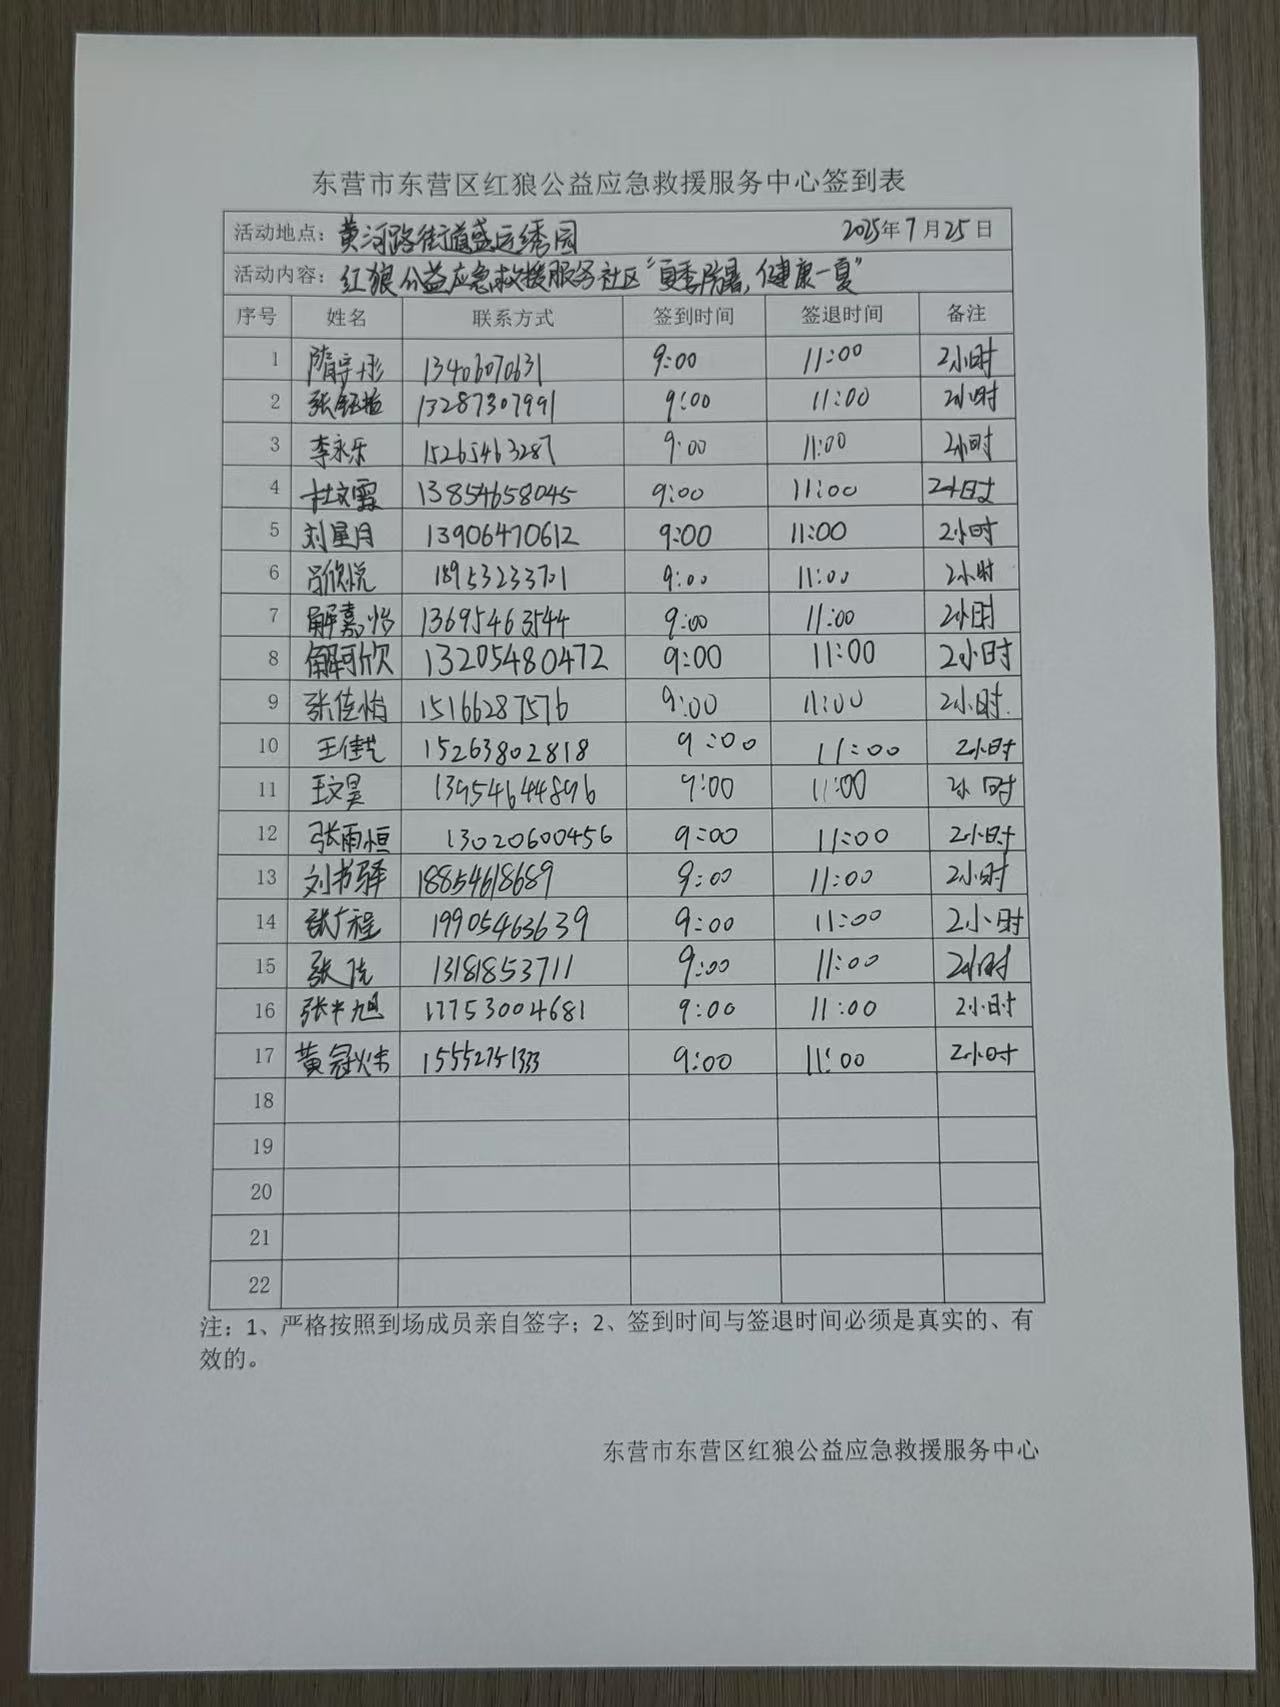 东营市东营区红狼公益应急救援服务中心签到表
活动地点：黄河路街道盛运绣园 2025年7月25日
活动内容：红狼公益应急救援服务社区“夏季防暑，健康一夏”
序号 姓名 联系方式 签到时间 签退时间 备注
1 隋宇彤 13406070631 9:00 11:00 2小时
2 张钰哲 13287307991 9:00 11:00 2小时
3 李永乐 15265463287 9:00 11:00 2小时
4 杜文霞 13854658045 9:00 11:00 2小时
5 刘星月 13906470612 9:00 11:00 2小时
6 吕欣悦 18953233701 9:00 11:00 2小时
7 解嘉怡 13695463544 9:00 11:00 2小时
8 解可欣 13205480472 9:00 11:00 2小时
9 张佳怡 15166287576 9:00 11:00 2小时
10 王佳艺 15263802818 9:00 11:00 2小时
11 王文昊 13954644896 9:00 11:00 2小时
12 张雨恒 13020600456 9:00 11:00 2小时
13 刘书驿 18854618689 9:00 11:00 2小时
14 张广程 19905463639 9:00 11:00 2小时
15 张 13181853711 9:00 11:00 2小时
16 张 旭 17753004681 9:00 11:00 2小时
17 黄冠炜 15552751333 9:00 11:00 2小时
18
19
20
21
22
注：1、严格按照到场成员亲自签字；2、签到时间与签退时间必须是真实的、有
效的。
东营市东营区红狼公益应急救援服务中心